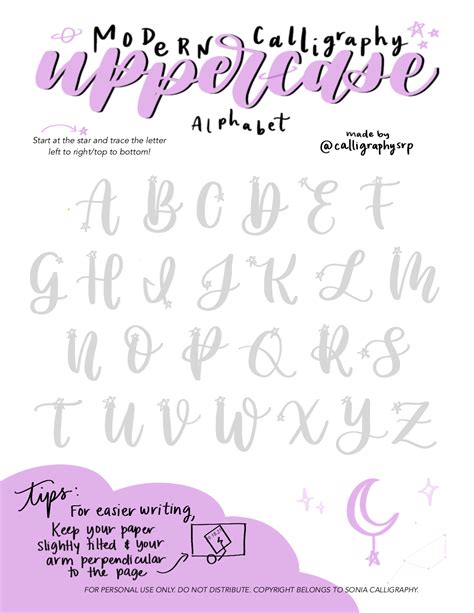 MODERN Calligraphy
uppercase
Alphabet
Start at the star and trace the letter
left to right/top to bottom!
made by
@calligraphysrp
A B C D E F
G H I J K L M
N O P Q R S
T U V W X Y Z
tips:
For easier writing,
Keep your paper
slightly tilted & your
arm perpendicular
to the page
FOR PERSONAL USE ONLY. DO NOT DISTRIBUTE. COPYRIGHT BELONGS TO SONIA CALLIGRAPHY.